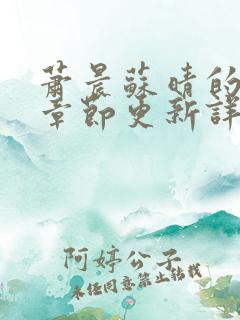 蕭晨蘇晴的
章節更新詳
阿婷公子
未經同意禁止轉載